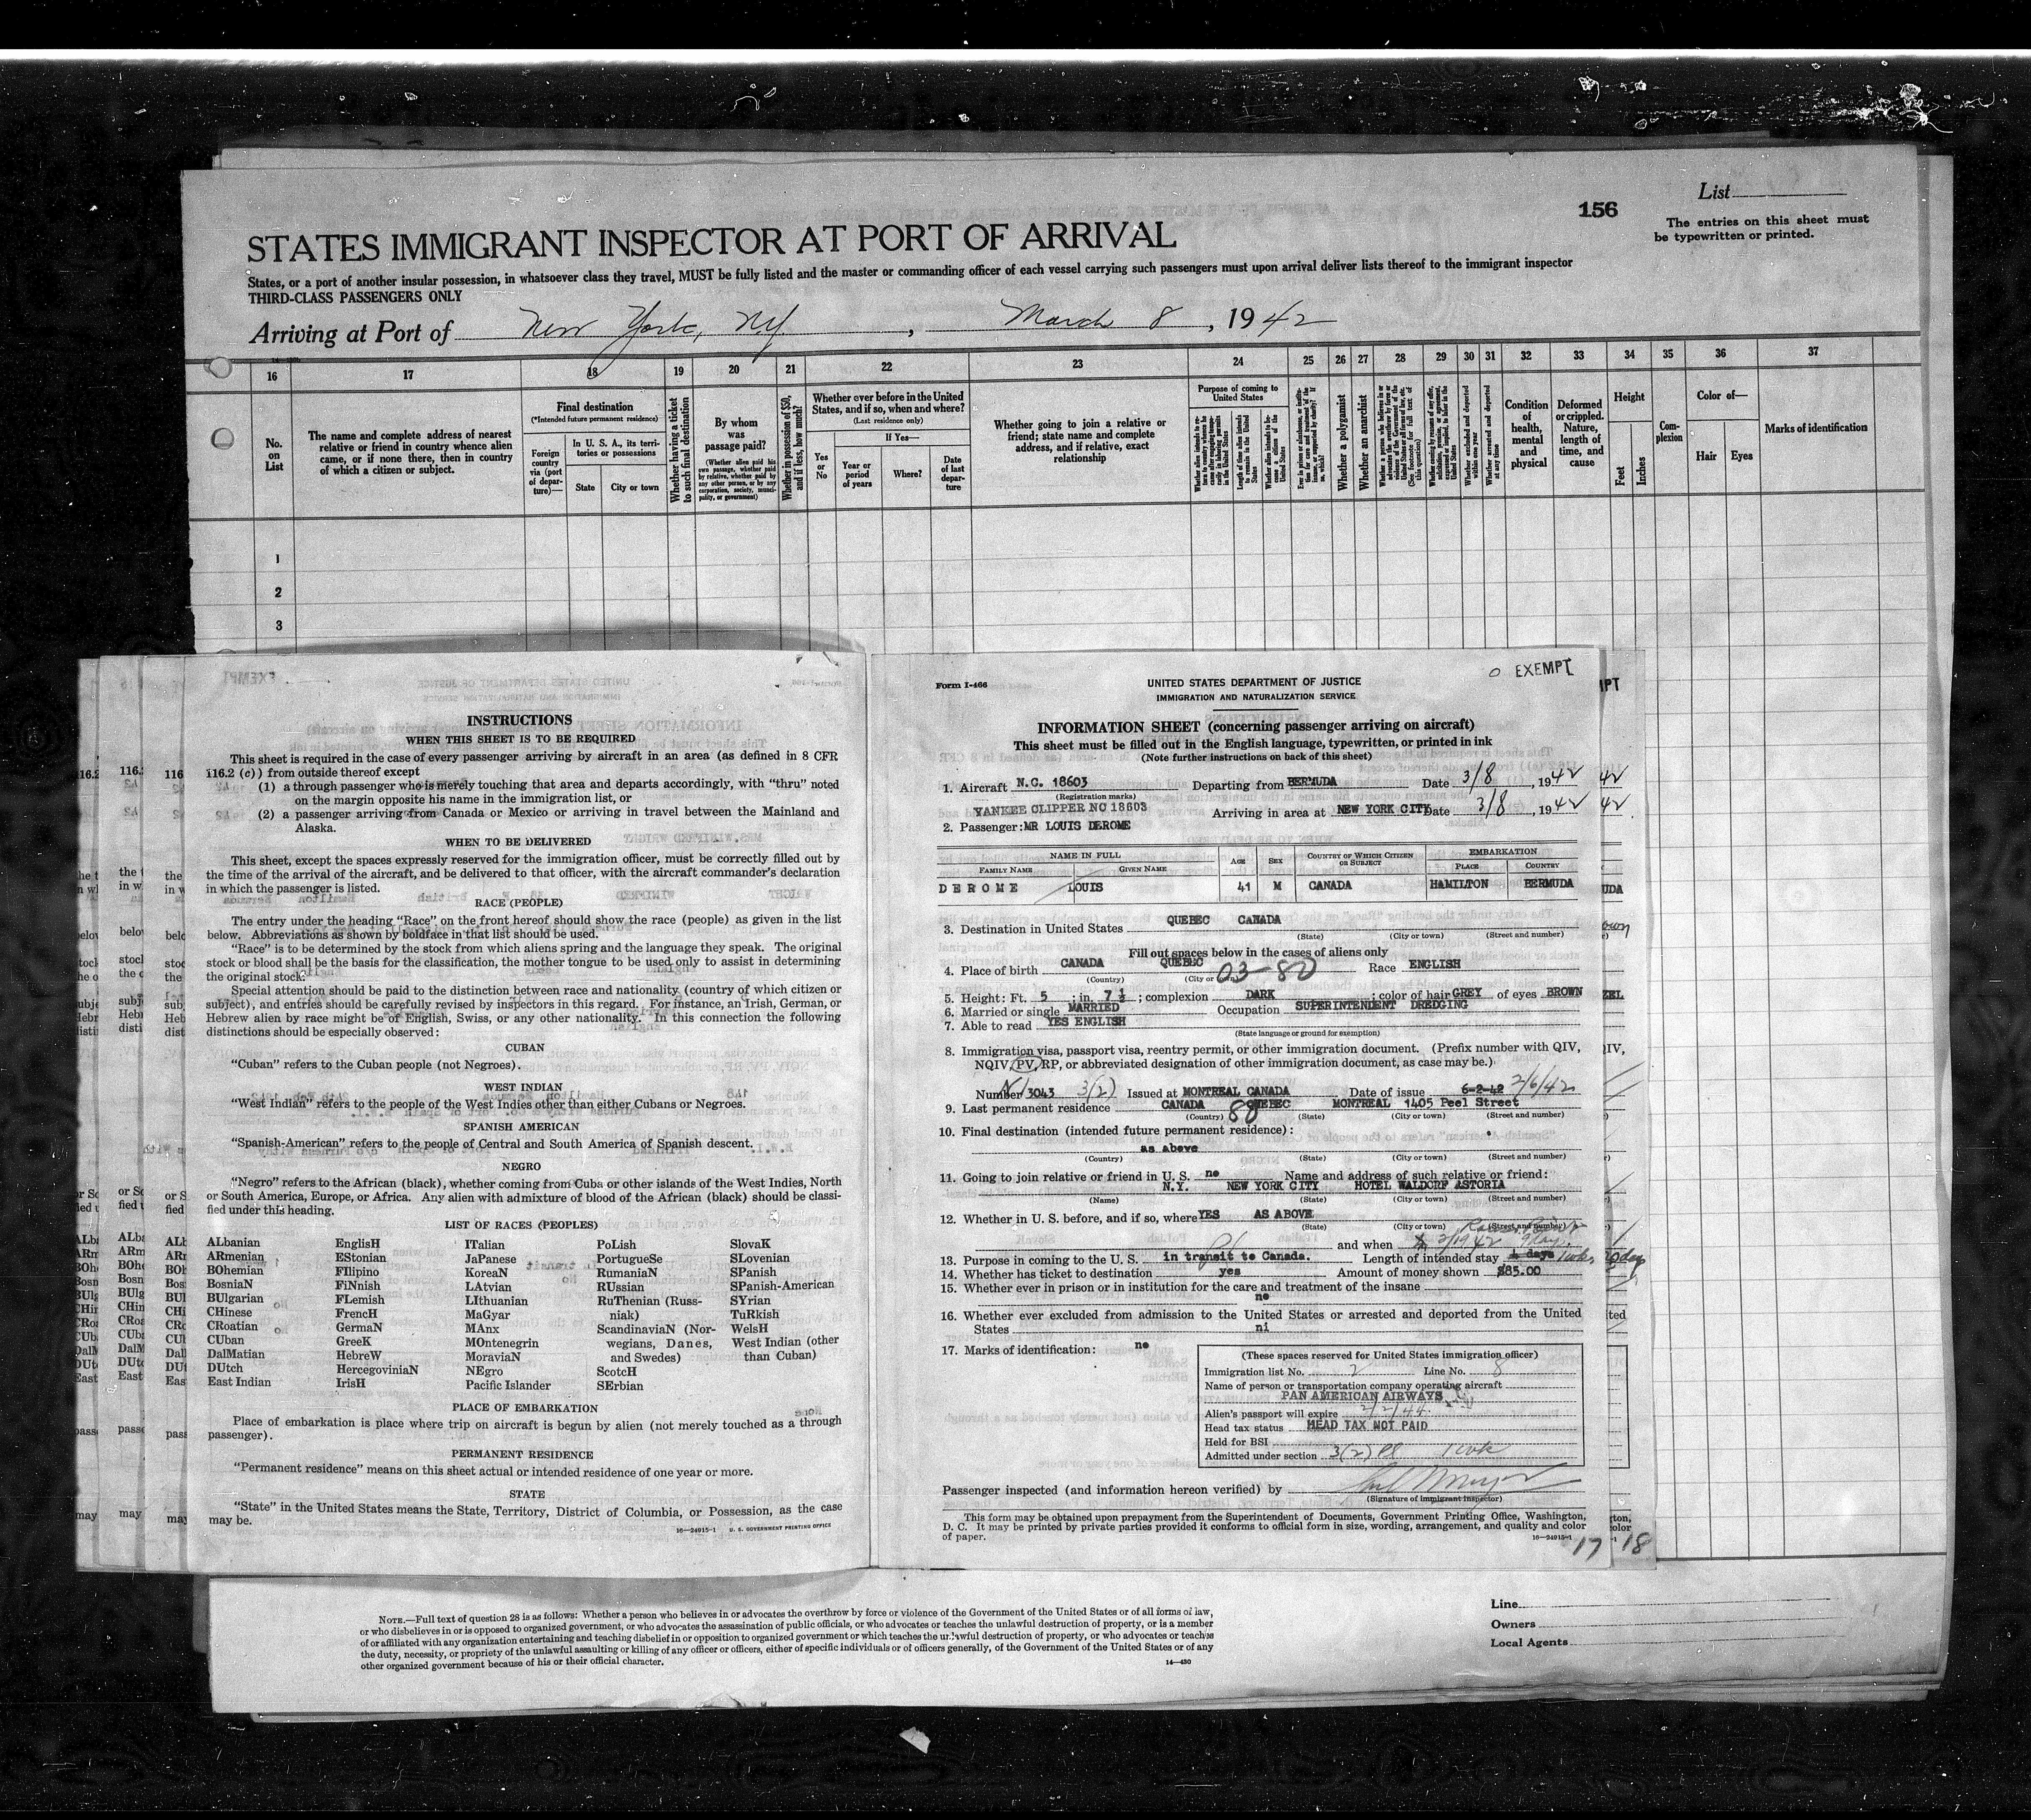 List
156
The entries on this sheet must
be typewritten or printed.
STATES IMMIGRANT INSPECTOR AT PORT OF ARRIVAL
States, or a port of another insular possession, in whatsoever class they travel, MUST be fully listed and the master or commanding officer of each vessel carrying such passengers must upon arrival deliver lists thereof to the immigrant inspector
THIRD-CLASS PASSENGERS ONLY
Arriving at Port of New York, NY, March 8, 1942
16 17 18 19 20 21 22 23 24 25 26 27 28 29 30 31 32 33 34 35 36 37
No. on List
The name and complete address of nearest
relative or friend in country whence alien
came, or if none there, then in country
of which a citizen or subject.
Final destination
(*Intended future permanent residence)
Foreign country via (port of departure)—
In U. S. A., its territories or possessions
State
City or town
Whether having a ticket to such final destination
By whom was passage paid?
(Whether alien paid his own passage, whether paid by relative, whether paid by any other person, or by any corporation, society, municipality, or government)
Whether in possession of $50, and if less, how much?
Whether ever before in the United
States, and if so, when and where?
(Last residence only)
Yes or No
If Yes—
Year or period of years
Where?
Date of last departure
Whether going to join a relative or
friend; state name and complete
address, and if relative, exact
relationship
Purpose of coming to United States
Length of time alien intends to remain in the United States
Whether a polygamist
Whether an anarchist
Whether excluded and deported within one year
Whether arrested and deported at any time
Condition of health, mental and physical
Deformed or crippled. Nature, length of time, and cause
Height
Feet
Inches
Complexion
Color of—
Hair
Eyes
Marks of identification
1
2
3
INSTRUCTIONS
WHEN THIS SHEET IS TO BE REQUIRED
This sheet is required in the case of every passenger arriving by aircraft in an area (as defined in 8 CFR
116.2 (c)) from outside thereof except
(1) a through passenger who is merely touching that area and departs accordingly, with "thru" noted
on the margin opposite his name in the immigration list, or
(2) a passenger arriving from Canada or Mexico or arriving in travel between the Mainland and
Alaska.
WHEN TO BE DELIVERED
This sheet, except the spaces expressly reserved for the immigration officer, must be correctly filled out by
the time of the arrival of the aircraft, and be delivered to that officer, with the aircraft commander's declaration
in which the passenger is listed.
RACE (PEOPLE)
The entry under the heading "Race" on the front hereof should show the race (people) as given in the list
below. Abbreviations as shown by boldface in that list should be used.
"Race" is to be determined by the stock from which aliens spring and the language they speak. The original
stock or blood shall be the basis for the classification, the mother tongue to be used only to assist in determining
the original stock.
Special attention should be paid to the distinction between race and nationality (country of which citizen or
subject), and entries should be carefully revised by inspectors in this regard. For instance, an Irish, German, or
Hebrew alien by race might be of English, Swiss, or any other nationality. In this connection the following
distinctions should be especially observed:
CUBAN
"Cuban" refers to the Cuban people (not Negroes).
WEST INDIAN
"West Indian" refers to the people of the West Indies other than either Cubans or Negroes.
SPANISH AMERICAN
"Spanish-American" refers to the people of Central and South America of Spanish descent.
NEGRO
"Negro" refers to the African (black), whether coming from Cuba or other islands of the West Indies, North
or South America, Europe, or Africa. Any alien with admixture of blood of the African (black) should be classi-
fied under this heading.
LIST OF RACES (PEOPLES)
ALbanian EnglisH ITalian PoLish SlovaK
ARmenian EStonian JaPanese PortugueSe SLovenian
BOhemian FIlipino KoreaN RumaniaN SPanish
BosniaN FiNnish LAtvian RUssian SPanish-American
BUlgarian FLemish LIthuanian RuThenian (Russ- SYrian
CHinese FrencH MaGyar niak) TuRkish
CRoatian GermaN MAnx ScandinaviaN (Nor- WelsH
CUban GreeK MOntenegrin wegians, Danes, West Indian (other
DalMatian HebreW MoraviaN and Swedes) than Cuban)
DUtch HercegoviniaN NEgro ScotcH
East Indian IrisH Pacific Islander SErbian
PLACE OF EMBARKATION
Place of embarkation is place where trip on aircraft is begun by alien (not merely touched as a through
passenger).
PERMANENT RESIDENCE
"Permanent residence" means on this sheet actual or intended residence of one year or more.
STATE
"State" in the United States means the State, Territory, District of Columbia, or Possession, as the case
may be.
16—24915-1 U. S. GOVERNMENT PRINTING OFFICE
EXEMPT
Form I-466
UNITED STATES DEPARTMENT OF JUSTICE
IMMIGRATION AND NATURALIZATION SERVICE
INFORMATION SHEET (concerning passenger arriving on aircraft)
This sheet must be filled out in the English language, typewritten, or printed in ink
(Note further instructions on back of this sheet)
1. Aircraft N.C. 18603 Departing from BERMUDA Date 3/8, 1942
(Registration marks)
YANKEE CLIPPER NC 18603 Arriving in area at NEW YORK CITY Date 3/8, 1942
2. Passenger: MR LOUIS DEROME
NAME IN FULL AGE SEX COUNTRY OF WHICH CITIZEN OR SUBJECT EMBARKATION
FAMILY NAME GIVEN NAME PLACE COUNTRY
DEROME LOUIS 41 M CANADA HAMILTON BERMUDA
QUEBEC CANADA
3. Destination in United States
(State) (City or town) (Street and number)
Fill out spaces below in the cases of aliens only
4. Place of birth CANADA QUEBEC 03-80 Race ENGLISH
(Country) (City or
5. Height: Ft. 5; in. 7 1/2; complexion DARK; color of hair GREY of eyes BROWN
6. Married or single MARRIED Occupation SUPERINTENDENT DREDGING
7. Able to read YES ENGLISH
(State language or ground for exemption)
8. Immigration visa, passport visa, reentry permit, or other immigration document. (Prefix number with QIV,
NQIV, PV, RP, or abbreviated designation of other immigration document, as case may be.)
Number 3043 3(2) Issued at MONTREAL CANADA Date of issue 6-2-42 2/6/42
9. Last permanent residence CANADA QUEBEC MONTREAL 1405 Peel Street
(Country) 80 (State) (City or town) (Street and number)
10. Final destination (intended future permanent residence):
as above
(Country) (State) (City or town) (Street and number)
11. Going to join relative or friend in U. S. no Name and address of such relative or friend:
N.Y. NEW YORK CITY HOTEL WALDORF ASTORIA
(Name) (State) (City or town) (Street and number)
12. Whether in U. S. before, and if so, where YES AS ABOVE
(State) (City or town) (Street and number)
and when 1942
13. Purpose in coming to the U. S. in transit to Canada. Length of intended stay days
14. Whether has ticket to destination yes Amount of money shown $85.00
15. Whether ever in prison or in institution for the care and treatment of the insane
no
16. Whether ever excluded from admission to the United States or arrested and deported from the United
States ni
17. Marks of identification: no
(These spaces reserved for United States immigration officer)
Immigration list No. 2 Line No. 8
Name of person or transportation company operating aircraft
PAN AMERICAN AIRWAYS
Alien's passport will expire 2/2/44
Head tax status HEAD TAX NOT PAID
Held for BSI
Admitted under section 3(2) 1 wk
Passenger inspected (and information hereon verified) by
(Signature of immigrant inspector)
This form may be obtained upon prepayment from the Superintendent of Documents, Government Printing Office, Washington,
D. C. It may be printed by private parties provided it conforms to official form in size, wording, arrangement, and quality and color
of paper.
16—24915-1
17 18
NOTE.—Full text of question 28 is as follows: Whether a person who believes in or advocates the overthrow by force or violence of the Government of the United States or of all forms of law,
or who disbelieves in or is opposed to organized government, or who advocates the assassination of public officials, or who advocates or teaches the unlawful destruction of property, or is a member
of or affiliated with any organization entertaining and teaching disbelief in or opposition to organized government or which teaches the unlawful destruction of property, or who advocates or teaches
the duty, necessity, or propriety of the unlawful assaulting or killing of any officer or officers, either of specific individuals or of officers generally, of the Government of the United States or of any
other organized government because of his or their official character.
14—430
Line
Owners
Local Agents